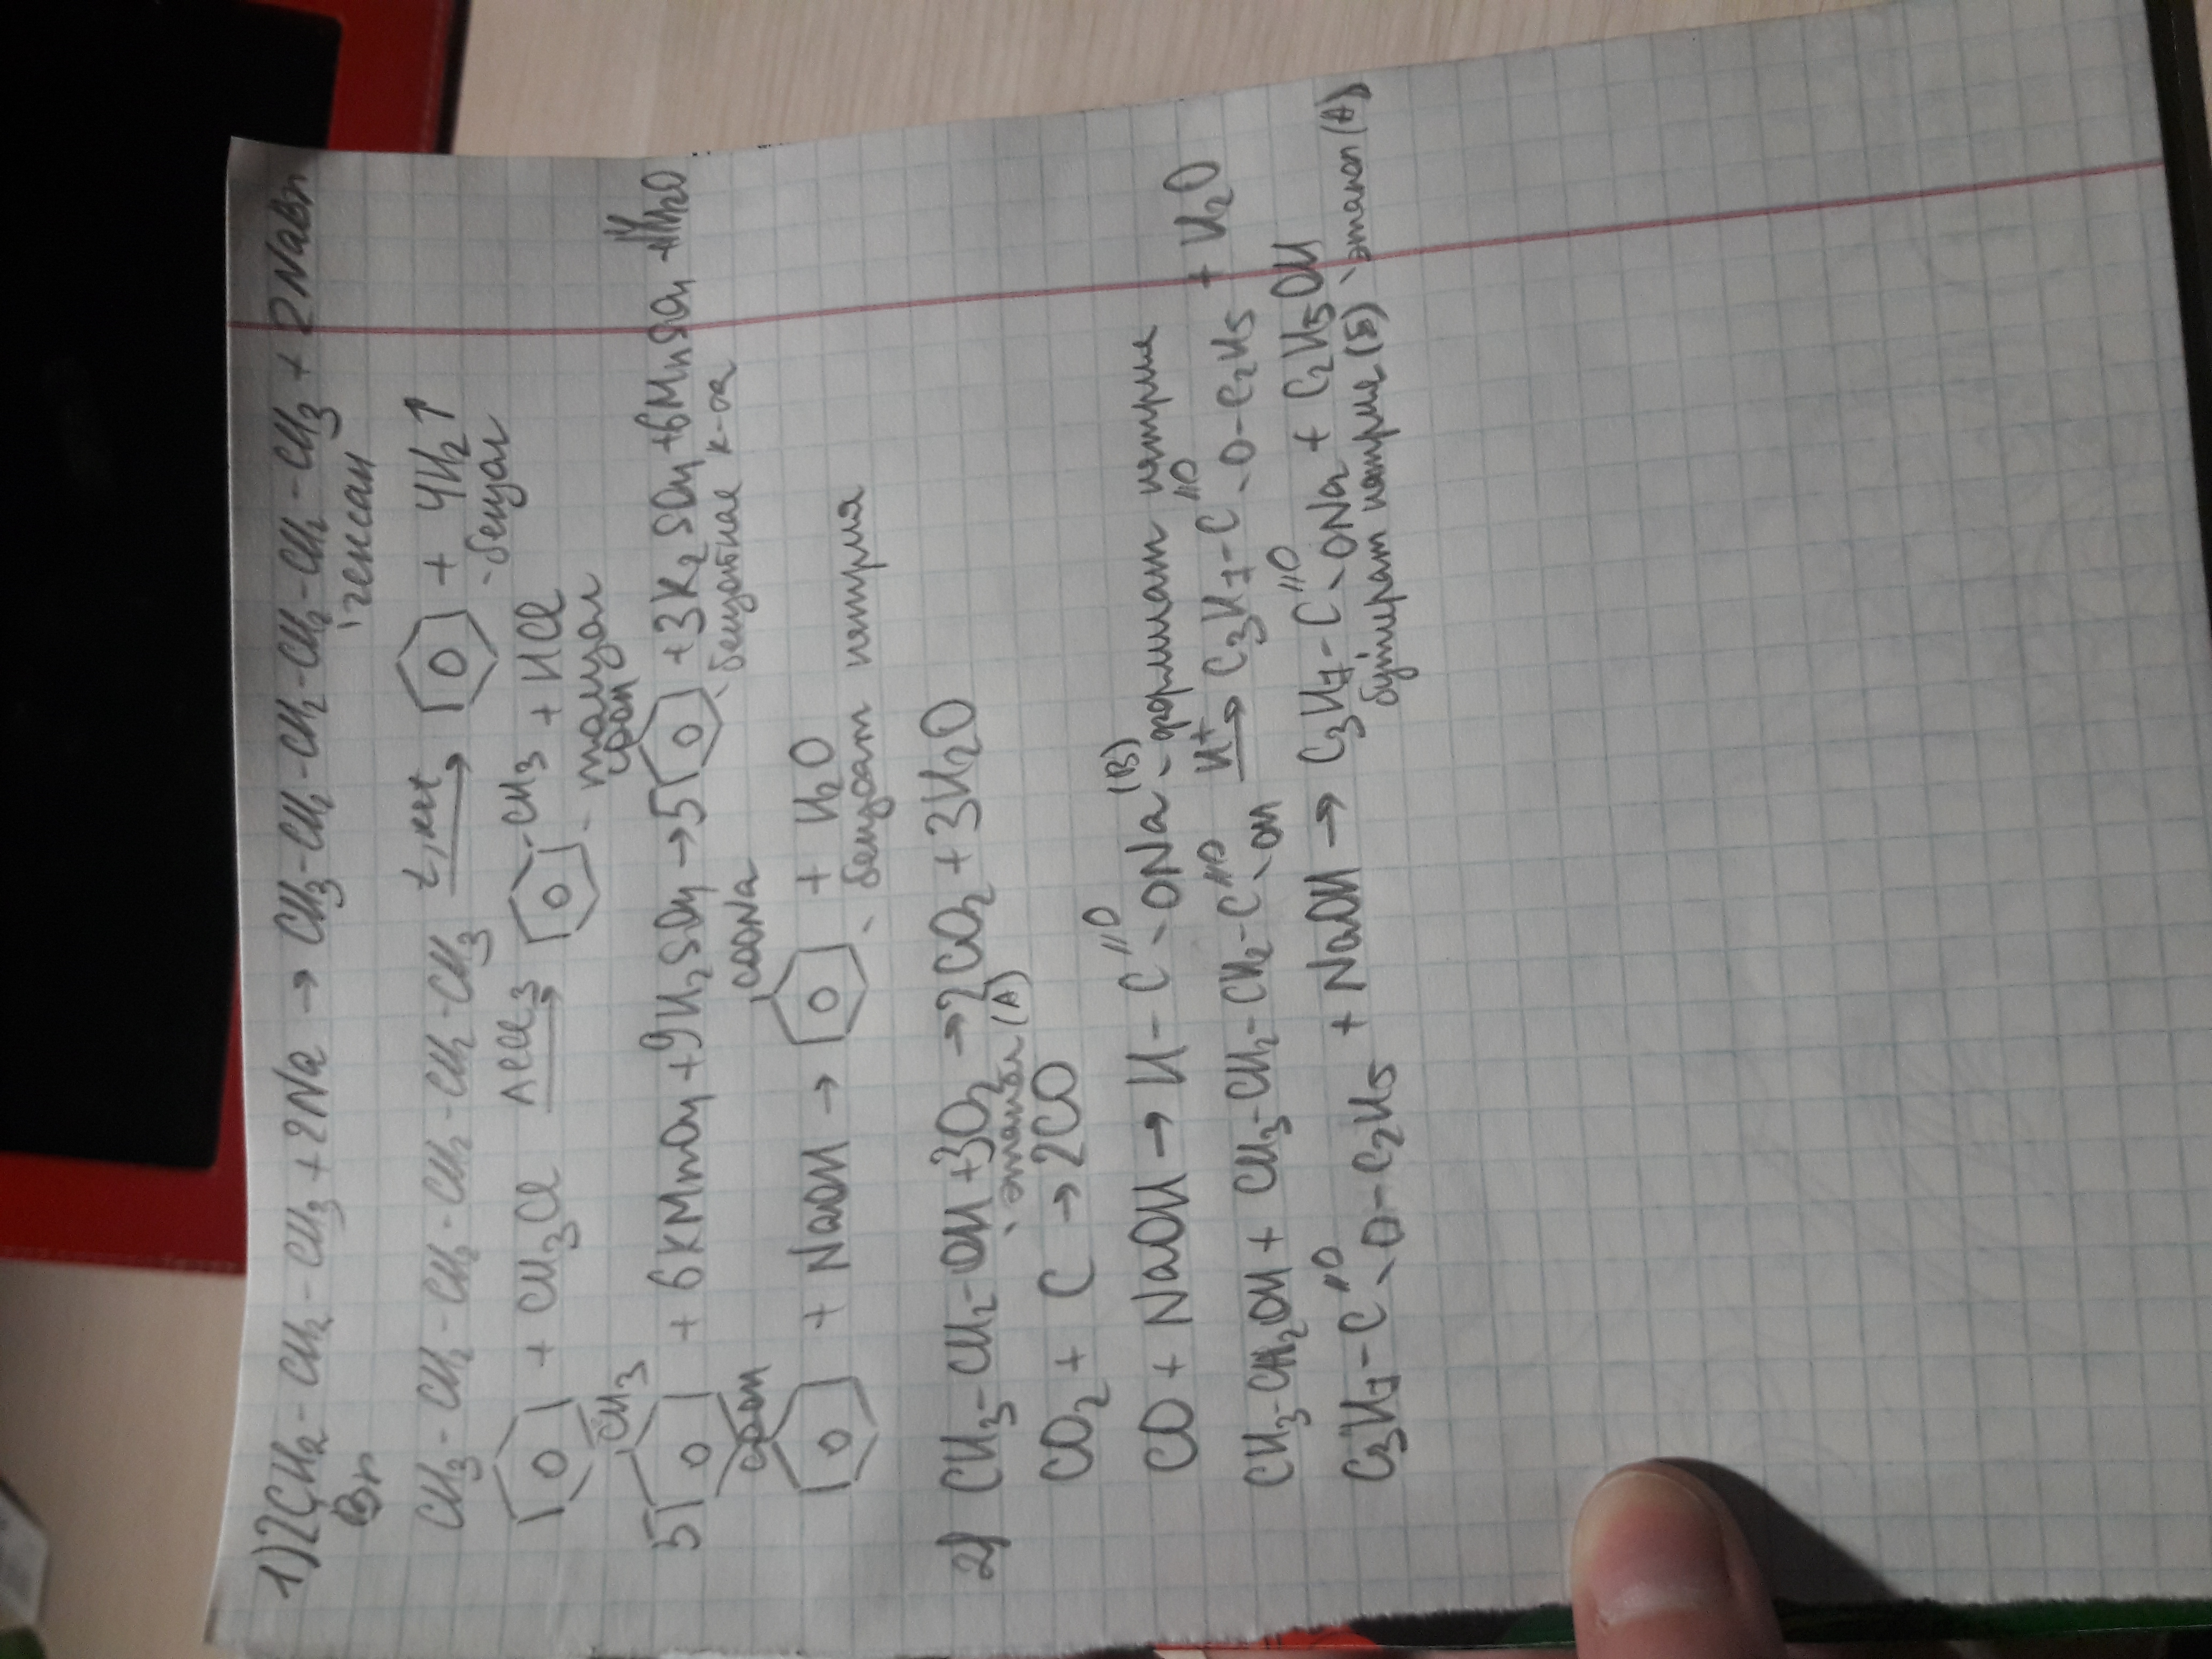 1) 2CH2-CH2-CH3 + 2Na → CH3-CH2-CH2-CH2-CH2-CH3 + 2NaBr
Br - гексан
CH3-CH2-CH2-CH2-CH2-CH3 t, kat → + 4H2↑
- бензол
+ CH3Cl AlCl3 → -CH3 + HCl
- толуол
CH3 COOH
5 + 6KMnO4 + 9H2SO4 → 5 + 3K2SO4 + 6MnSO4 + 14H2O
- бензойная к-та
COOH COONa
+ NaOH → + H2O
- бензоат натрия
2) CH3-CH2-OH + 3O2 → 2CO2 + 3H2O
- этанол (A)
CO2 + C → 2CO
CO + NaOH → H-C=O-ONa (B) - формиат натрия
CH3-CH2OH + CH3-CH2-CH2-C=O-OH H+ → C3H7-C=O-O-C2H5 + H2O
C3H7-C=O-O-C2H5 + NaOH → C3H7-C=O-ONa + C2H5OH
бутират натрия (Б) - этанол (A)